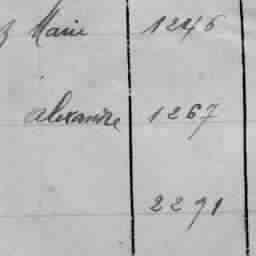 Marie 1246
Alexandre 1267
2271